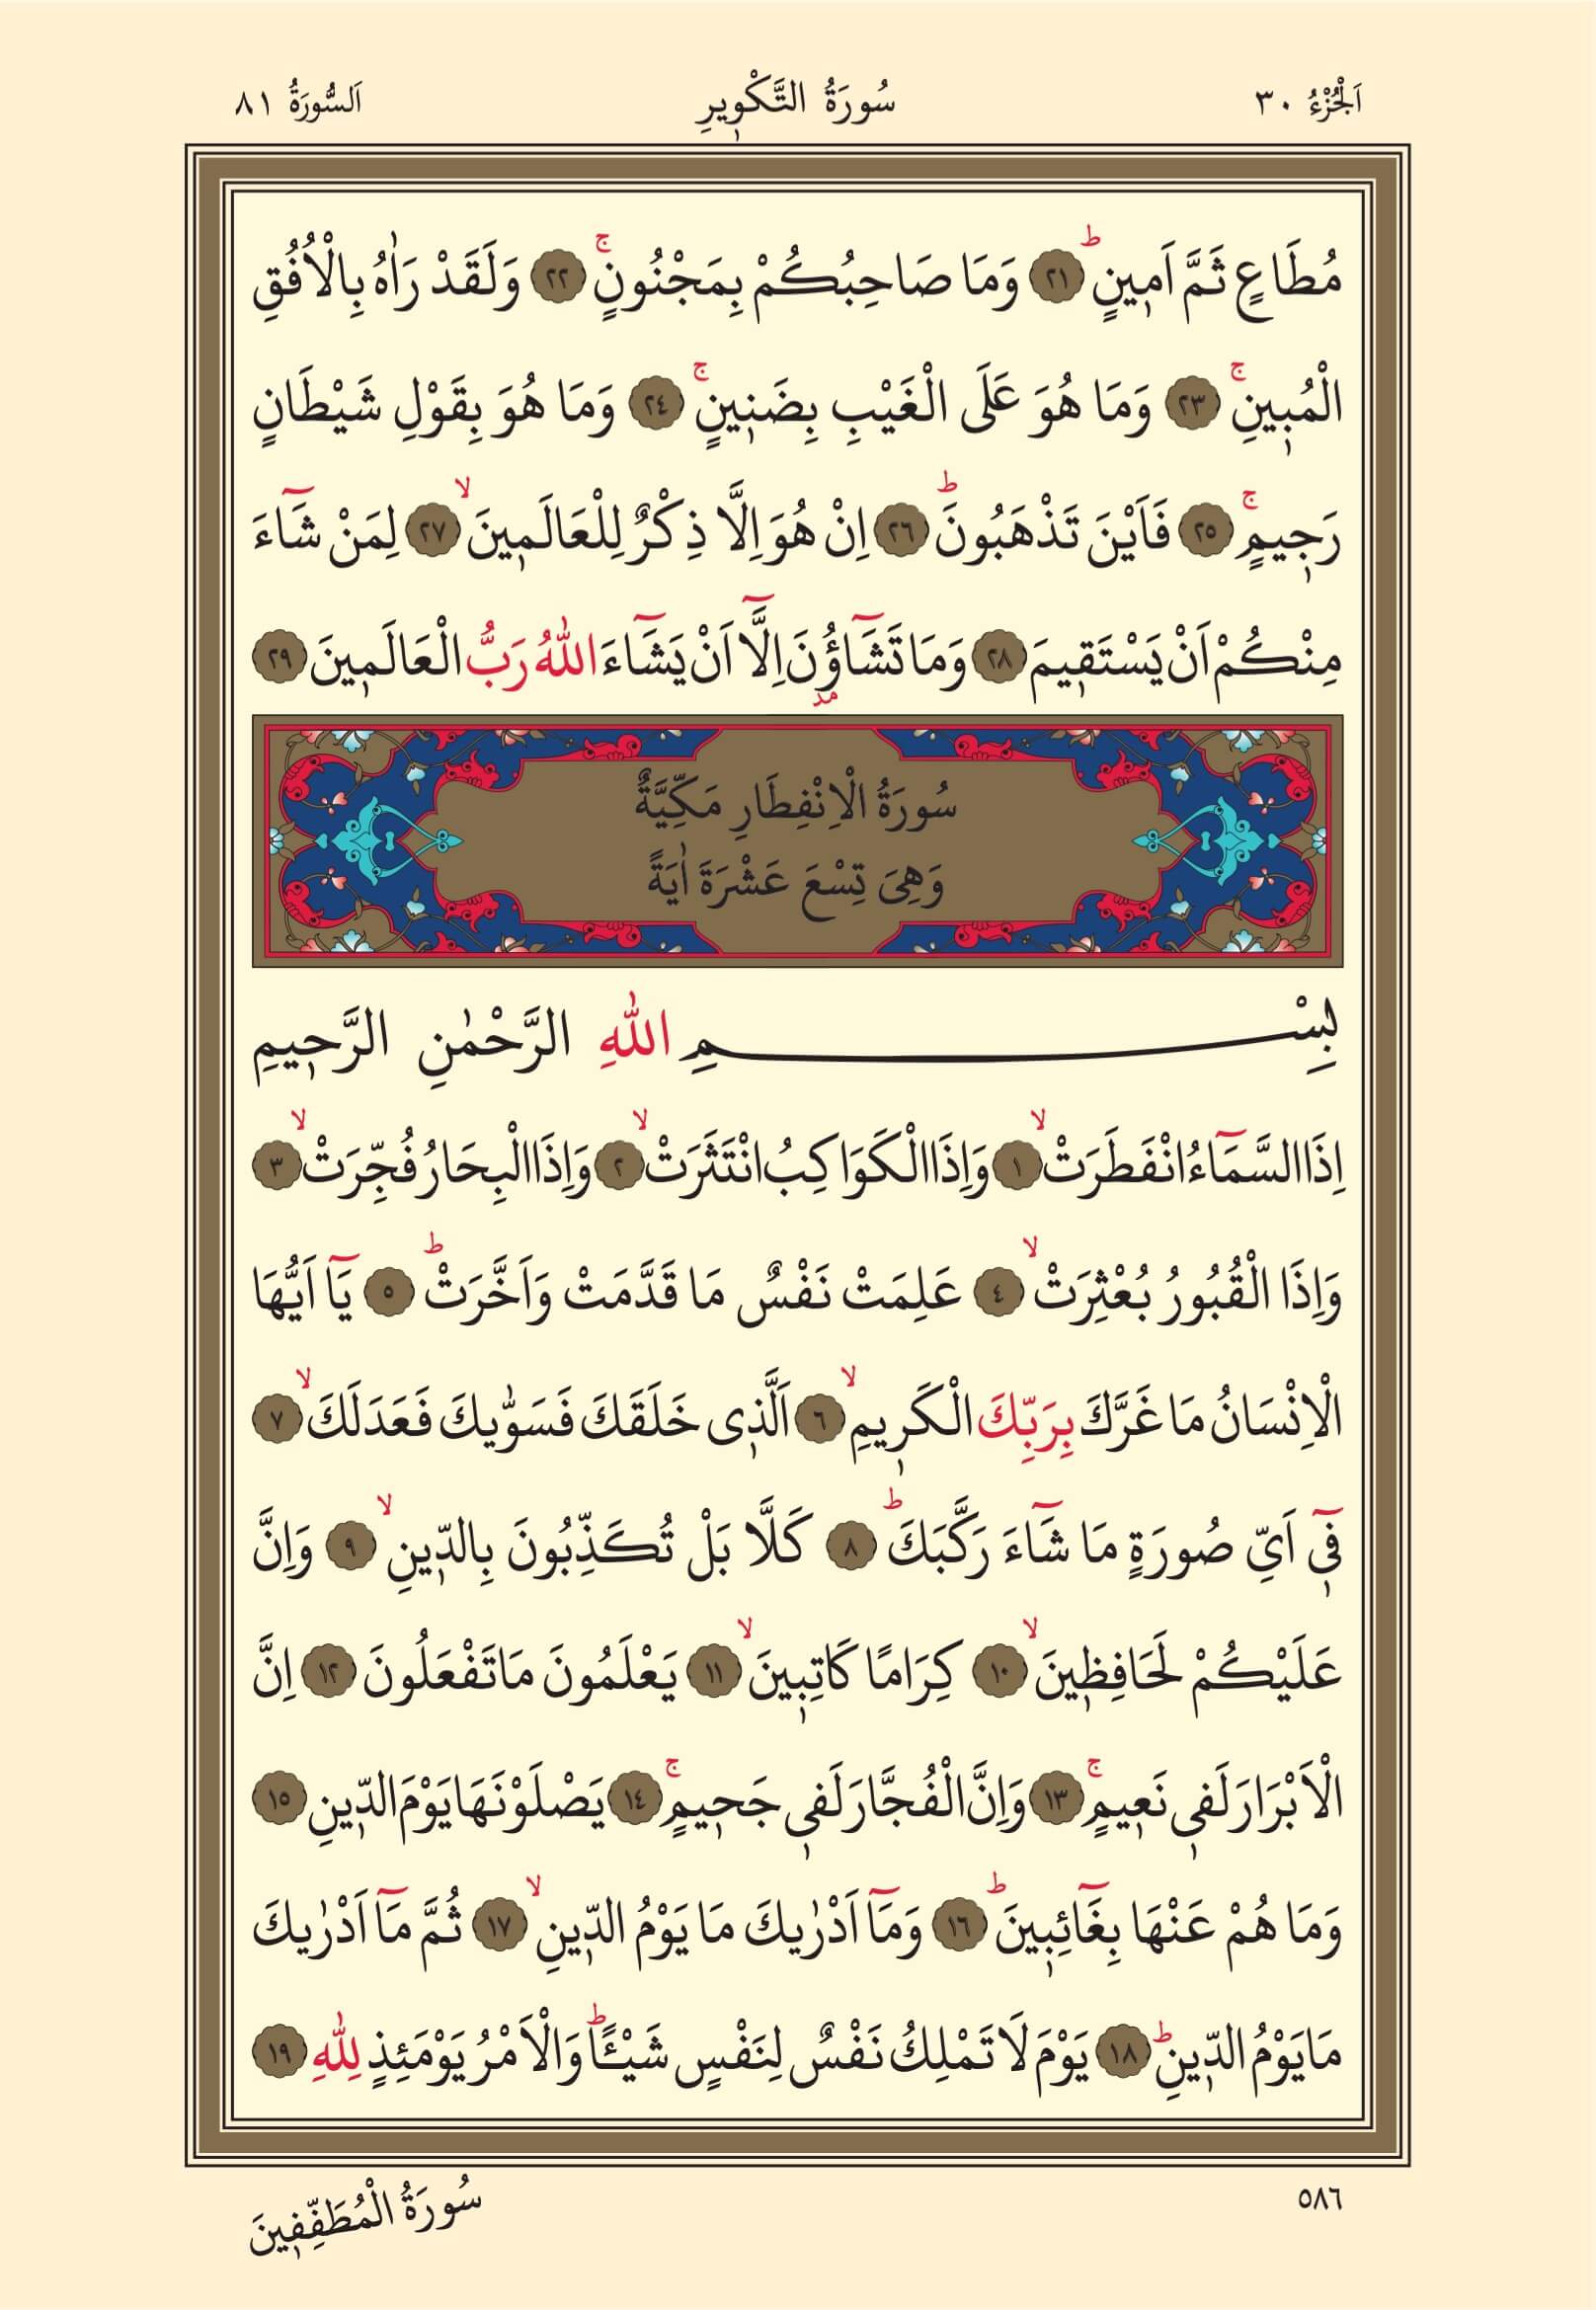 اَلْجُزْءُ ٣٠ سُورَةُ التَّكْوٖيرِ اَلسُّورَةُ ٨١
مُطَاعٍ ثَمَّ اَمٖينٍؕ ﴿٢١﴾ وَمَا صَاحِبُكُمْ بِمَجْنُونٍۚ ﴿٢٢﴾ وَلَقَدْ رَاٰهُ بِالْاُفُقِ
الْمُبٖينِۚ ﴿٢٣﴾ وَمَا هُوَ عَلَى الْغَيْبِ بِضَنٖينٍۚ ﴿٢٤﴾ وَمَا هُوَ بِقَوْلِ شَيْطَانٍ
رَجٖيمٍۚ ﴿٢٥﴾ فَاَيْنَ تَذْهَبُونَؕ ﴿٢٦﴾ اِنْ هُوَ اِلَّا ذِكْرٌ لِلْعَالَمٖينَۙ ﴿٢٧﴾ لِمَنْ شَٓاءَ
مِنْكُمْ اَنْ يَسْتَقٖيمَ ﴿٢٨﴾ وَمَا تَشَٓاؤُ۫نَ اِلَّٓا اَنْ يَشَٓاءَ اللّٰهُ رَبُّ الْعَالَمٖينَ ﴿٢٩﴾
مد
سُورَةُ الْاِنْفِطَارِ مَكِّيَّةٌ
وَهِىَ تِسْعَ عَشْرَةَ اٰيَةً
بِسْمِ اللّٰهِ الرَّحْمٰنِ الرَّحٖيمِ
اِذَا السَّمَٓاءُ انْفَطَرَتْۙ ﴿١﴾ وَاِذَا الْكَوَاكِبُ انْتَثَرَتْۙ ﴿٢﴾ وَاِذَا الْبِحَارُ فُجِّرَتْۙ ﴿٣﴾
وَاِذَا الْقُبُورُ بُعْثِرَتْۙ ﴿٤﴾ عَلِمَتْ نَفْسٌ مَا قَدَّمَتْ وَاَخَّرَتْؕ ﴿٥﴾ يَٓا اَيُّهَا
الْاِنْسَانُ مَا غَرَّكَ بِرَبِّكَ الْكَرٖيمِۙ ﴿٦﴾ اَلَّذٖى خَلَقَكَ فَسَوّٰيكَ فَعَدَلَكَۙ ﴿٧﴾
فٖٓى اَىِّ صُورَةٍ مَا شَٓاءَ رَكَّبَكَؕ ﴿٨﴾ كَلَّا بَلْ تُكَذِّبُونَ بِالدّٖينِۙ ﴿٩﴾ وَاِنَّ
عَلَيْكُمْ لَحَافِظٖينَۙ ﴿١٠﴾ كِرَامًا كَاتِبٖينَۙ ﴿١١﴾ يَعْلَمُونَ مَا تَفْعَلُونَ ﴿١٢﴾ اِنَّ
الْاَبْرَارَ لَفٖى نَعٖيمٍۚ ﴿١٣﴾ وَاِنَّ الْفُجَّارَ لَفٖى جَحٖيمٍۚ ﴿١٤﴾ يَصْلَوْنَهَا يَوْمَ الدّٖينِ ﴿١٥﴾
وَمَا هُمْ عَنْهَا بِغَٓائِبٖينَؕ ﴿١٦﴾ وَمَٓا اَدْرٰيكَ مَا يَوْمُ الدّٖينِۙ ﴿١٧﴾ ثُمَّ مَٓا اَدْرٰيكَ
مَا يَوْمُ الدّٖينِؕ ﴿١٨﴾ يَوْمَ لَا تَمْلِكُ نَفْسٌ لِنَفْسٍ شَيْـًٔاؕ وَالْاَمْرُ يَوْمَئِذٍ لِلّٰهِ ﴿١٩﴾
٥٨٦ سُورَةُ الْمُطَفِّفٖينَ